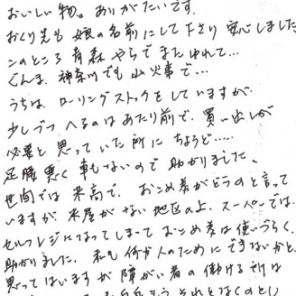 おいしい物。ありがたいです。
おくり先も娘の名前にして下さり安心しました
このところ青森やらでまたゆれて…
ぐんま、神奈川でも山火事で…
うちは、ローリングストックをしていますが
少しづつへるのはあたり前で、買い出しが
必要と思っていた所にちょうど……
足腰悪く車もないので助かりました。
世間では米高で、おこめ券がどうのと言って
いますが米屋がない地区の上、スーパーでは、
セルフレジになってしまっておこめ券は使いづらく、
助かりました。私も何か人のためにできないかと、
思ってはいますが障がい者の働ける所は